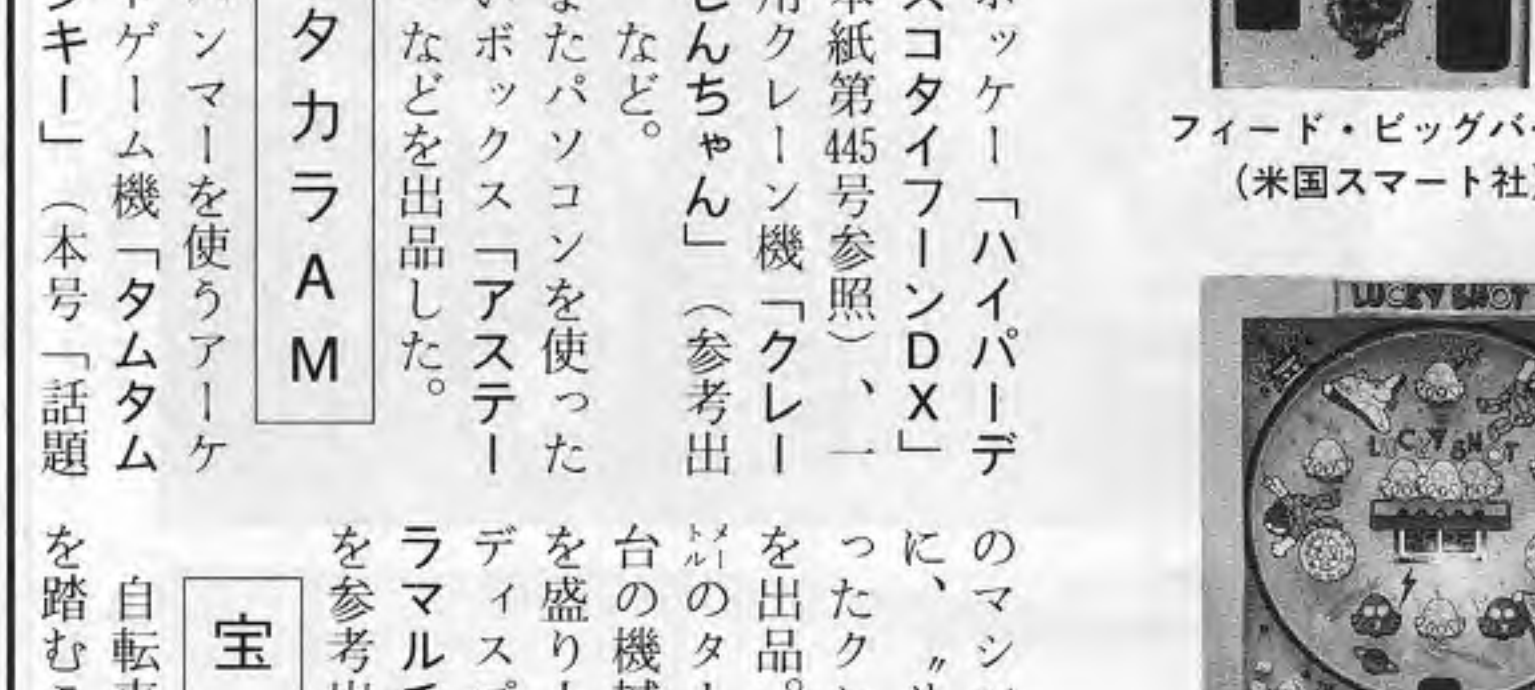 ホッケー「ハイパーデ
スコタイフーンDX」
本紙第445号参照）、一
用クレーン機「クレー
しんちゃん」（参考出
など。
またパソコンを使った
いボックス「アステー
などを出品した。
タカラAM
ンマーを使うアーケ
ドゲーム機「タムタム
ッキー」（本号「話題
のマシ
に、〃
ったク
を出品。
メートルのタ
台の機械
を盛り
ディスプ
ラマルチ
を参考出
宝
自転車
を踏む
フィード・ビッグバ
（米国スマート社）
LUCKY SHOT
LUCKY SHOT